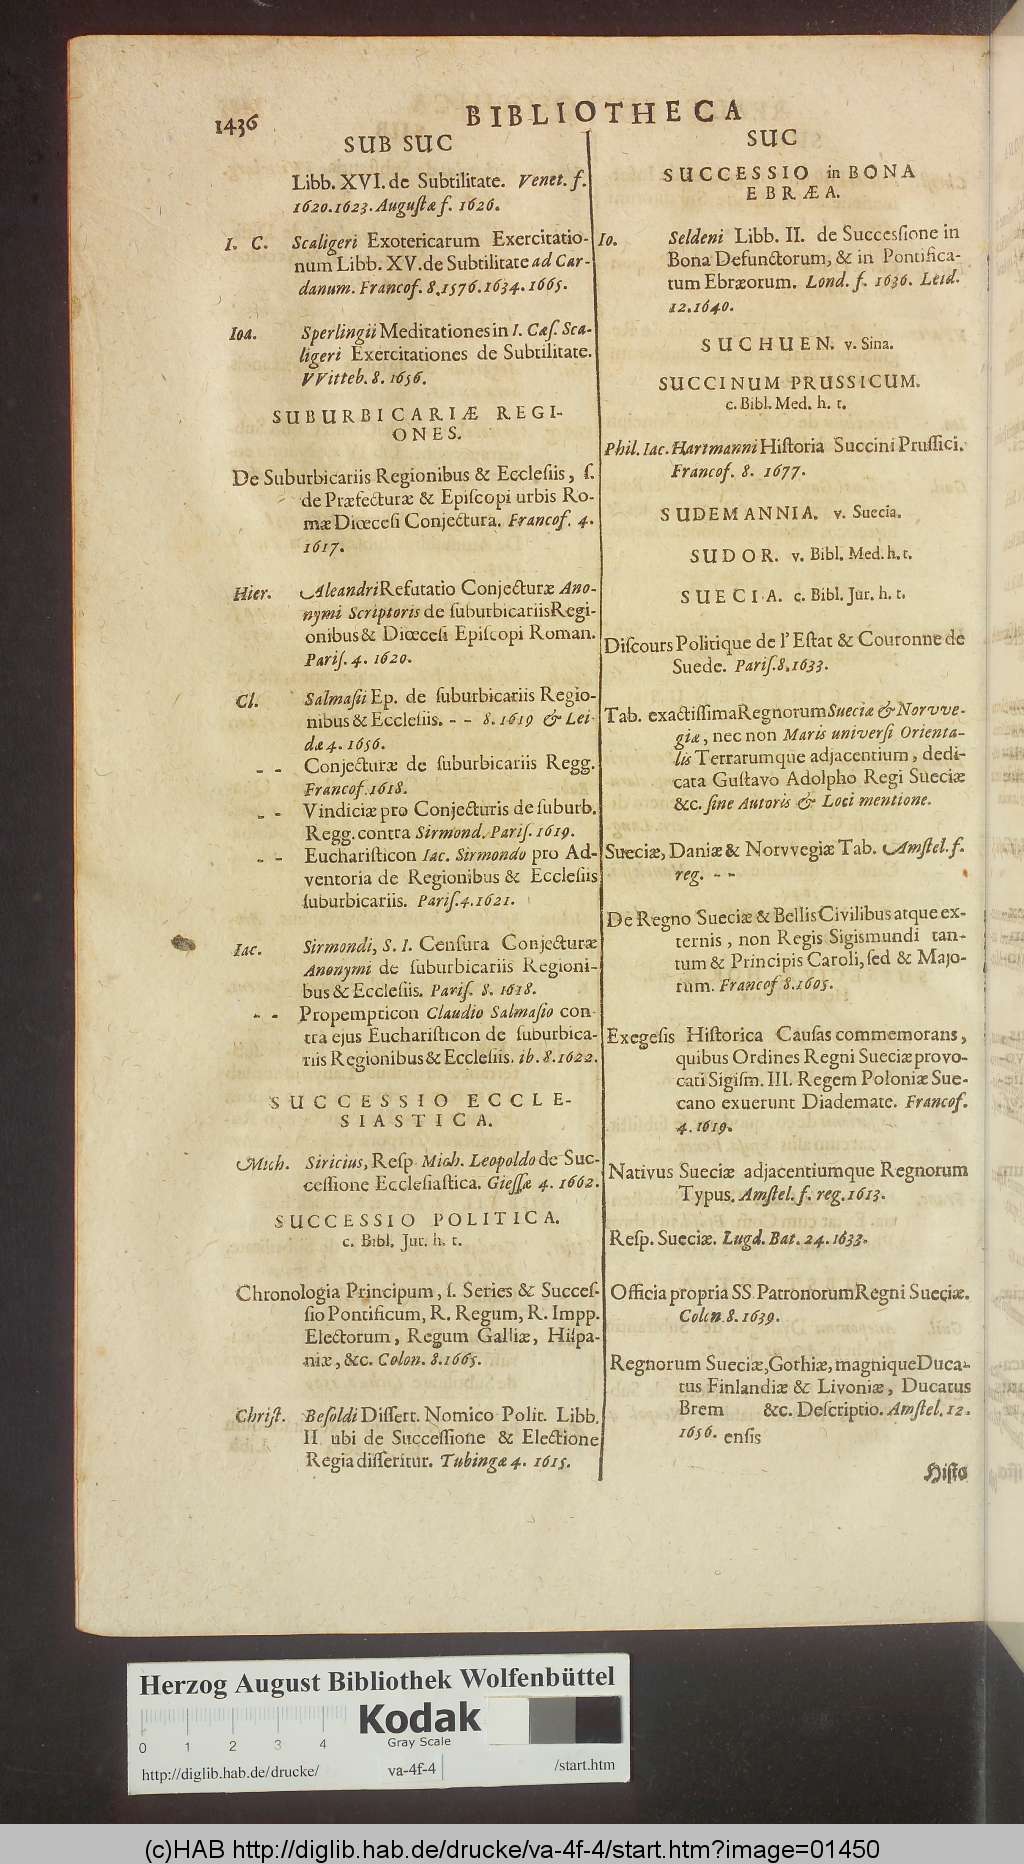 1436
BIBLIOTHECA
SUB SUC
Libb. XVI. de Subtilitate. Venet. f.
1620. 1623. Augustæ f. 1626.
I. C. Scaligeri Exotericarum Exercitatio-
num Libb. XV. de Subtilitate ad Car-
danum. Francof. 8. 1576. 1634. 1665.
Ioa. Sperlingii Meditationes in I. Cæs. Sca-
ligeri Exercitationes de Subtilitate.
VVitteb. 8. 1656.
SUBURBICARIÆ REGI-
ONES.
De Suburbicariis Regionibus & Ecclesiis, s.
de Præfecturæ & Episcopi urbis Ro-
mæ Diœcesi Conjectura. Francof. 4.
1617.
Hier. Aleandri Refutatio Conjecturæ Ano-
nymi Scriptoris de suburbicariis Regi-
onibus & Diœcesi Episcopi Roman.
Paris. 4. 1620.
Cl. Salmasii Ep. de suburbicariis Regio-
nibus & Ecclesiis. - - 8. 1619 & Lei-
dæ 4. 1656.
- - Conjecturæ de suburbicariis Regg.
Francof. 1618.
- - Vindiciæ pro Conjecturis de suburb.
Regg. contra Sirmond. Paris. 1619.
- - Eucharisticon Iac. Sirmondo pro Ad-
ventoria de Regionibus & Ecclesiis
suburbicariis. Paris. 4. 1621.
Iac. Sirmondi, S. I. Censura Conjecturæ
Anonymi de suburbicariis Regioni-
bus & Ecclesiis. Paris. 8. 1618.
- - Propempticon Claudio Salmasio con-
tra ejus Eucharisticon de suburbica-
riis Regionibus & Ecclesiis. ib. 8. 1622.
SUCCESSIO ECCLE-
SIASTICA.
Mich. Siricius, Resp. Mich. Leopoldo de Suc-
cessione Ecclesiastica. Giessæ 4. 1662.
SUCCESSIO POLITICA.
c. Bibl. Jur. h. t.
Chronologia Principum, s. Series & Succes-
sio Pontificum, R. Regum, R. Impp.
Electorum, Regum Galliæ, Hispa-
niæ, &c. Colon. 8. 1665.
Christ. Besoldi Dissert. Nomico Polit. Libb.
II ubi de Successione & Electione
Regia disseritur. Tubingæ 4. 1615.
SUC
SUCCESSIO in BONA
EBRÆA.
Io. Seldeni Libb. II. de Successione in
Bona Defunctorum, & in Pontifica-
tum Ebræorum. Lond. f. 1636. Leid.
12. 1640.
SUCHUEN. v. Sina.
SUCCINUM PRUSSICUM.
c. Bibl. Med. h. t.
Phil. Iac. Hartmanni Historia Succini Prussici.
Francof. 8. 1677.
SUDEMANNIA. v. Suecia.
SUDOR. v. Bibl. Med. h. t.
SUECIA. c. Bibl. Jur. h. t.
Discours Politique de l'Estat & Couronne de
Suede. Paris. 8. 1633.
Tab. exactissima Regnorum Sueciæ & Norvve-
giæ, nec non Maris universi Orienta-
lis Terrarumque adjacentium, dedi-
cata Gustavo Adolpho Regi Sueciæ
&c. sine Autoris & Loci mentione.
Sueciæ, Daniæ & Norvvegiæ Tab. Amstel. f.
reg. - -
De Regno Sueciæ & Bellis Civilibus atque ex-
ternis, non Regis Sigismundi tan-
tum & Principis Caroli, sed & Majo-
rum. Francof 8. 1605.
Exegesis Historica Causas commemorans,
quibus Ordines Regni Sueciæ provo-
cati Sigism. III. Regem Poloniæ Sue-
cano exuerunt Diademate. Francof.
4. 1619.
Nativus Sueciæ adjacentiumque Regnorum
Typus. Amstel. f. reg. 1613.
Resp. Sueciæ. Lugd. Bat. 24. 1633.
Officia propria SS. Patronorum Regni Sueciæ.
Colon. 8. 1639.
Regnorum Sueciæ, Gothiæ, magnique Duca-
tus Finlandiæ & Livoniæ, Ducatus
Brem &c. Descriptio. Amstel. 12.
1656. ensis
Histo
Herzog August Bibliothek Wolfenbüttel
Kodak
Gray Scale
0 1 2 3 4
http://diglib.hab.de/drucke/ va-4f-4 /start.htm
(c)HAB http://diglib.hab.de/drucke/va-4f-4/start.htm?image=01450